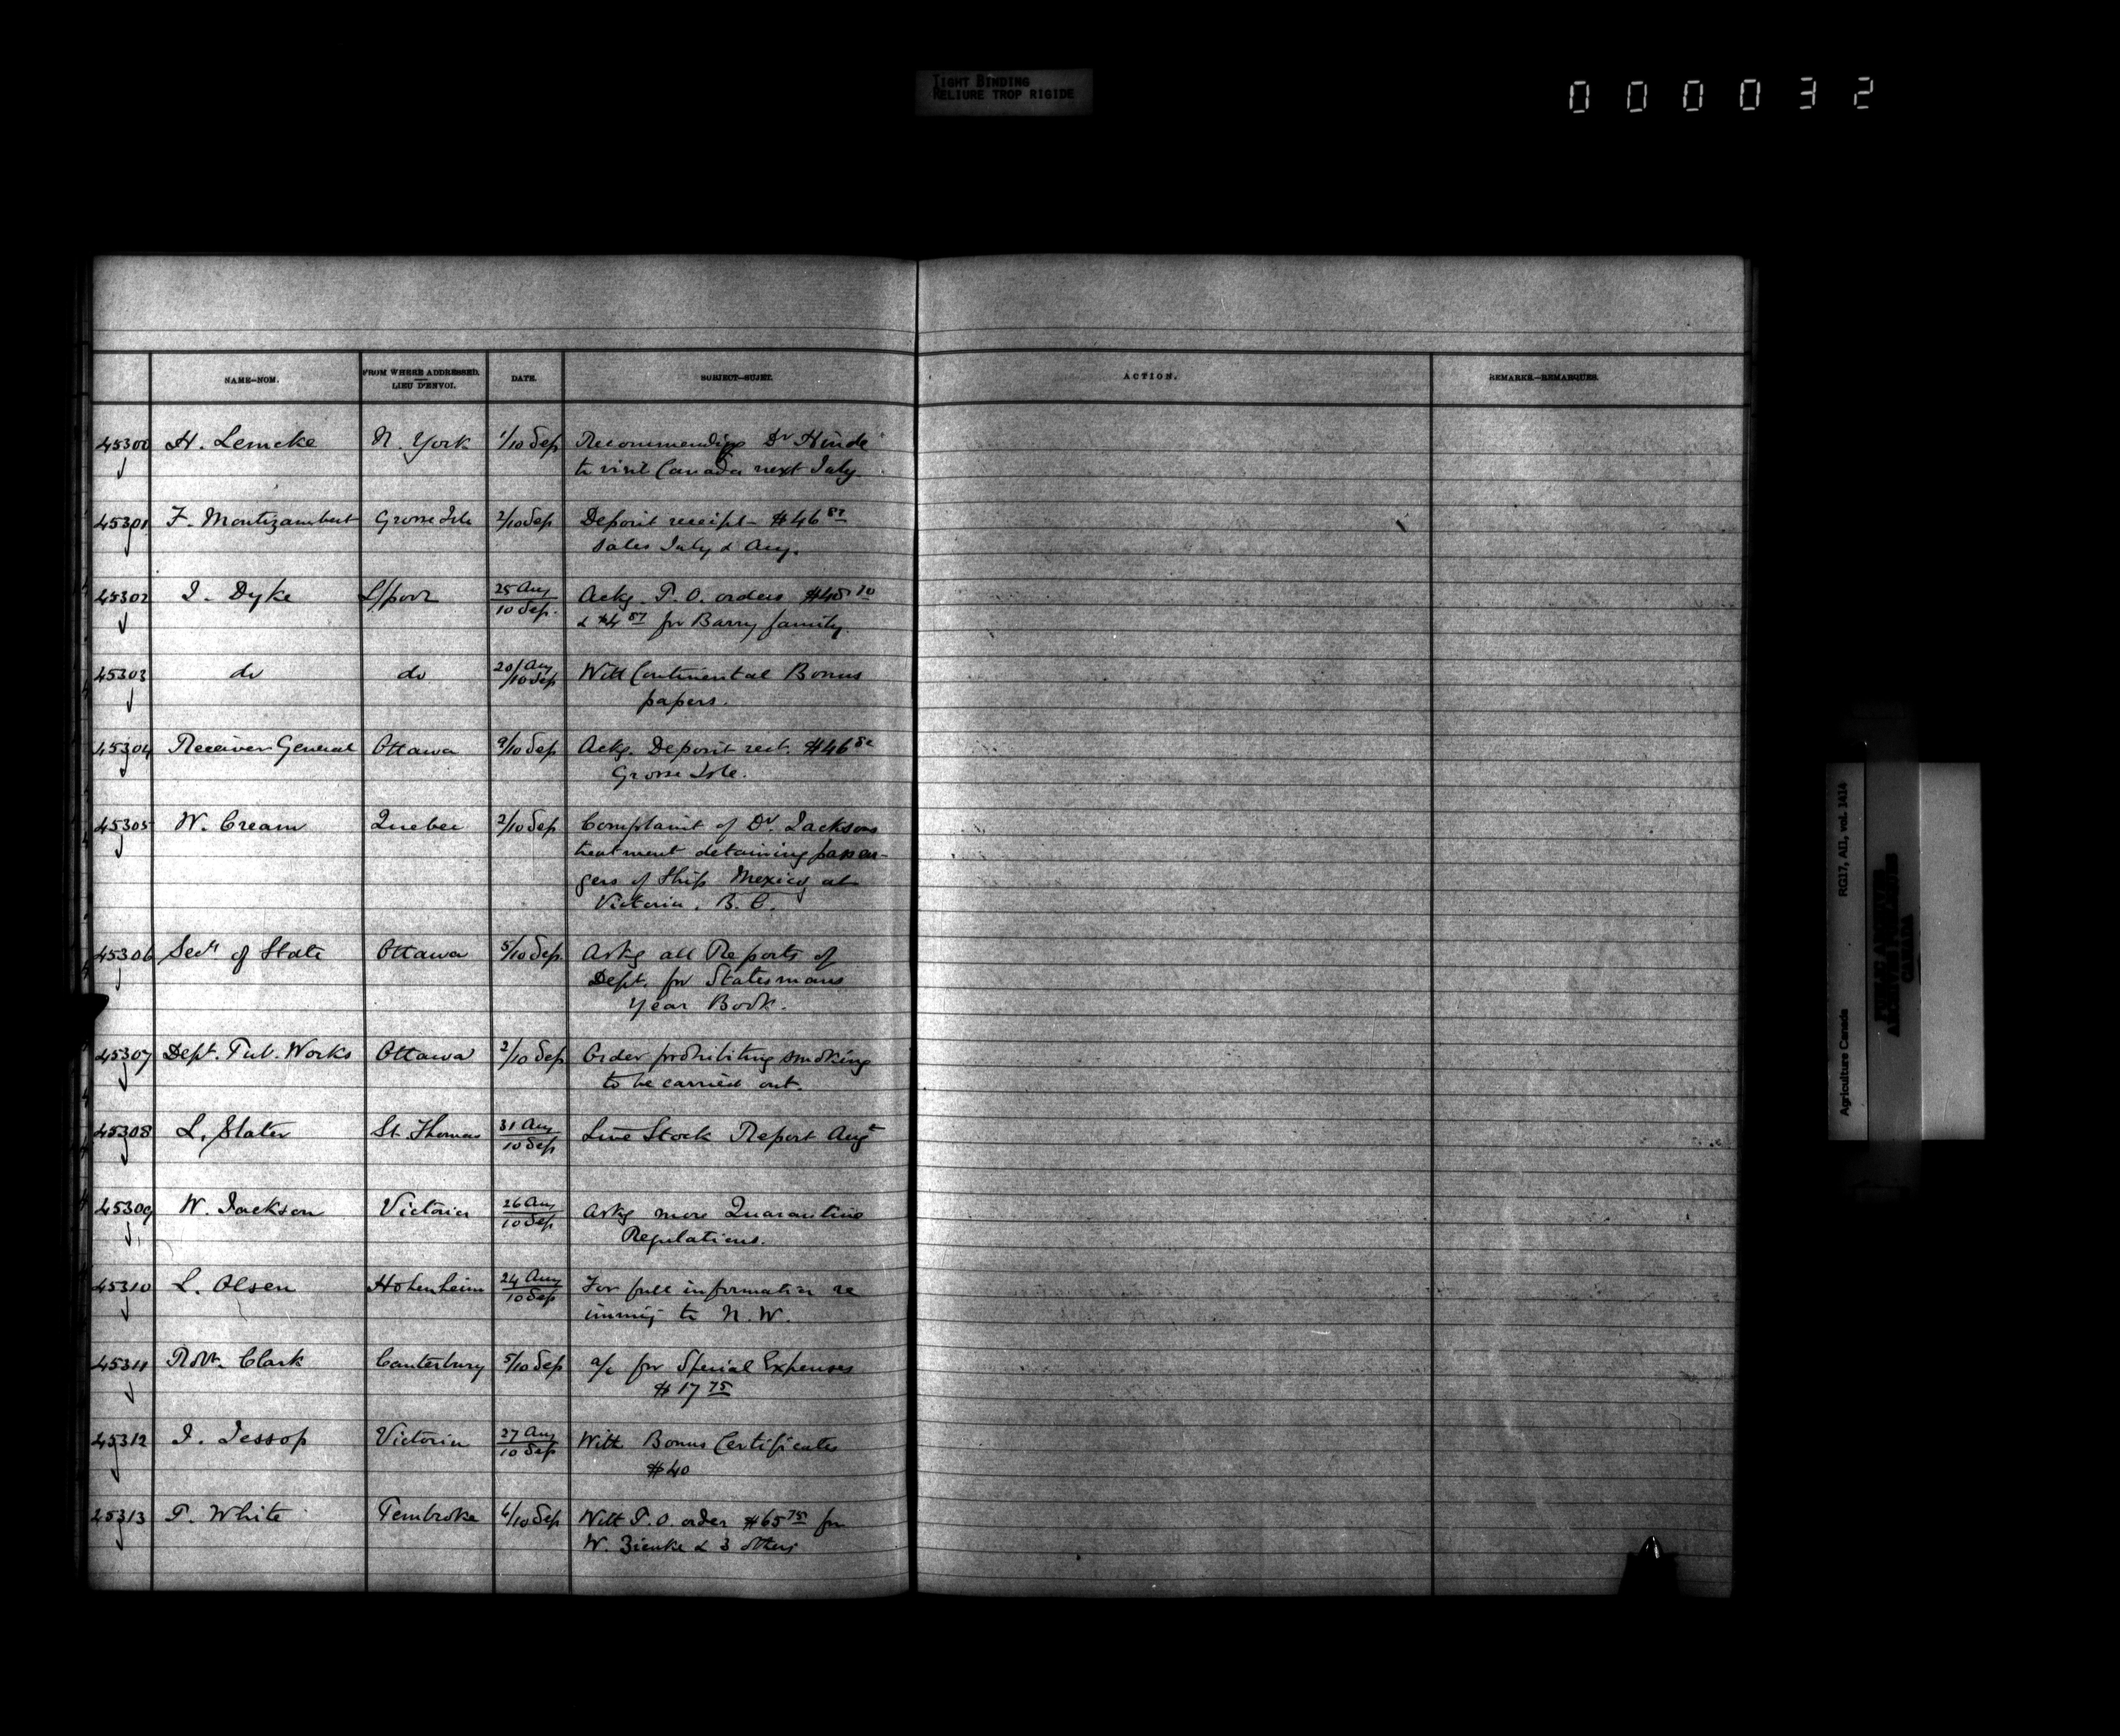 TIGHT BINDING
RELIURE TROP RIGIDE
000032
NAME—NOM. FROM WHERE ADDRESSED. LIEU D'ENVOI. DATE. SUBJECT—SUJET. ACTION. REMARKS.—REMARQUES.
45300 H. Lemcke N. York 1/10 Sep Recommending Dr Hinde
to visit Canada next July
45301 F. Montizambert Grosse Isle 2/10 Sep Deposit receipt $46 82
Sales July & Aug.
45302 J. Dyke L/pool 25 Aug Ackg P.O. orders
10 Sep. & $4 87 for Barry family.
45303 do do 20/Aug With Continental Bonus
/10 Sep papers.
45304 Receiver General Ottawa 9/10 Sep Ackg. Deposit rect. $46 82
Grosse Isle.
45305 W. Cream Quebec 2/10 Sep Complaint of Dr. Jacksons
treatment detaining passen-
gers of Ship Mexico at
Victoria, B.C.
45306 Secy of State Ottawa 5/10 Sep. Askg all Reports of
Dept. for Statesmans
Year Book.
45307 Dept. Pub. Works Ottawa 2/10 Sep Order prohibiting smoking
to be carried out.
45308 L. Slater St. Thomas 31 Aug Live Stock Report Augt
10 Sep
45309 W. Jackson Victoria 26 Aug Askg more Quarantine
10 Sep Regulations.
45310 L. Olsen Hohenheim 24 Aug For full information re
10 Sep immig to N.W.
45311 Robt. Clark Canterbury 5/10 Sep a/c for Special Expenses
$17 75
45312 J. Jessop Victoria 27 Aug With Bonus Certificates
10 Sep $40
45313 P. White Pembroke 6/10 Sep With P.O. order $65 75 for
W. Zienke & 3 others
Agriculture Canada RG17, AII, vol. 1414
PUBLIC ARCHIVES
ARCHIVES PUBLIQUES
CANADA